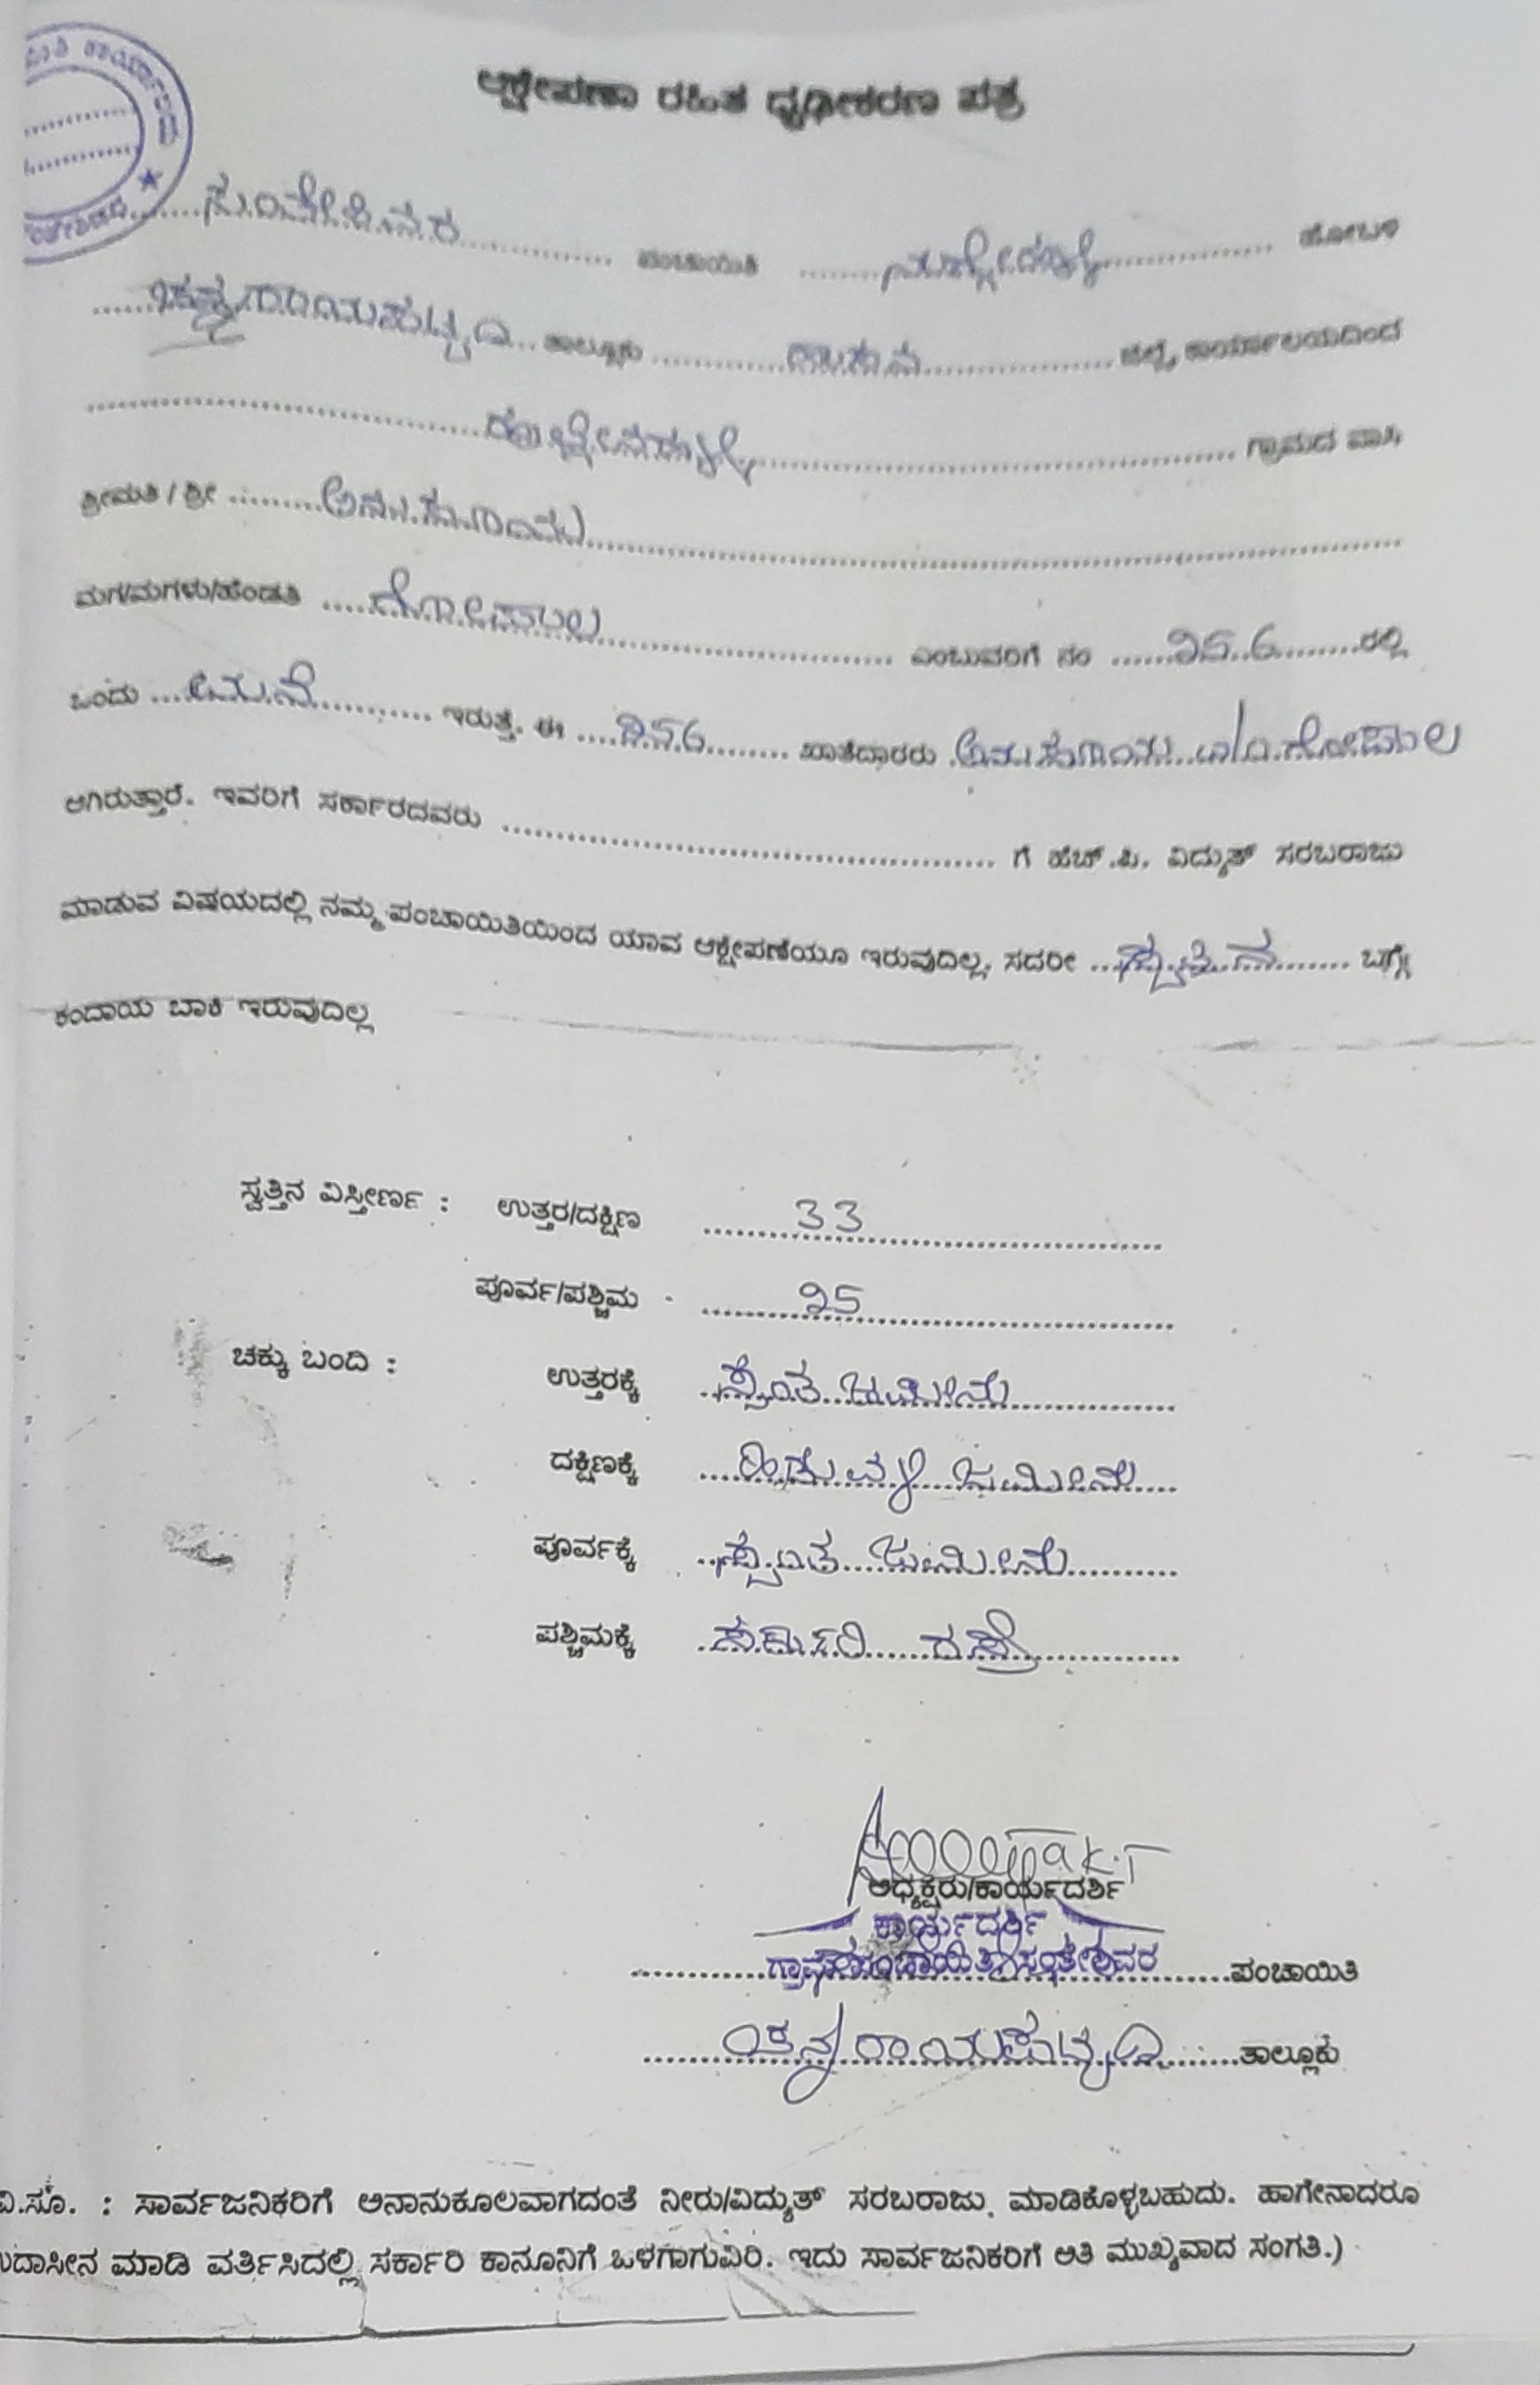 ಆಕ್ಷೇಪಣಾ ರಹಿತ ಧೃಢೀಕರಣ ಪತ್ರ
ಪಂಚಾಯಿತಿ ಹೋಬಳಿ
ಚನ್ನರಾಯಪಟ್ಟಣ ತಾಲ್ಲೂಕು ಹಾಸನ ಜಿಲ್ಲೆ, ಕಾರ್ಯಾಲಯದಿಂದ
ಗ್ರಾಮದ ವಾಸಿ
ಶ್ರೀಮತಿ / ಶ್ರೀ ಅನುಸೂಯ
ಮಗ/ಮಗಳು/ಹೆಂಡತಿ ಗೋಪಾಲ ಎಂಬುವರಿಗೆ ನಂ 256 ರಲ್ಲಿ
ಒಂದು ಮನೆ ಇರುತ್ತೆ. ಈ 256 ಖಾತೆದಾರರು ಅನುಸೂಯ ಗೋಪಾಲ
ಆಗಿರುತ್ತಾರೆ. ಇವರಿಗೆ ಸರ್ಕಾರದವರು ಗೆ ಹೆಚ್.ಪಿ. ವಿದ್ಯುತ್ ಸರಬರಾಜು
ಮಾಡುವ ವಿಷಯದಲ್ಲಿ ನಮ್ಮ ಪಂಚಾಯಿತಿಯಿಂದ ಯಾವ ಆಕ್ಷೇಪಣೆಯೂ ಇರುವುದಿಲ್ಲ. ಸದರೀ ಸ್ವತ್ತಿನ ಬಗ್ಗೆ
ಕಂದಾಯ ಬಾಕಿ ಇರುವುದಿಲ್ಲ
ಸ್ವತ್ತಿನ ವಿಸ್ತೀರ್ಣ : ಉತ್ತರ/ದಕ್ಷಿಣ 33
ಪೂರ್ವ/ಪಶ್ಚಿಮ 25
ಚಕ್ಕು ಬಂದಿ : ಉತ್ತರಕ್ಕೆ ಸ್ವಂತ ಜಮೀನು
ದಕ್ಷಿಣಕ್ಕೆ ಹಿಡುವಳಿ ಜಮೀನು
ಪೂರ್ವಕ್ಕೆ ಸ್ವಂತ ಜಮೀನು
ಪಶ್ಚಿಮಕ್ಕೆ ಸರ್ಕಾರಿ ರಸ್ತೆ
ಅಧ್ಯಕ್ಷರು/ಕಾರ್ಯದರ್ಶಿ
ಕಾರ್ಯದರ್ಶಿ
ಗ್ರಾಮ ಪಂಚಾಯಿತಿ ಪಂಚಾಯಿತಿ
ಚನ್ನರಾಯಪಟ್ಟಣ ತಾಲ್ಲೂಕು
ವಿ.ಸೂ. : ಸಾರ್ವಜನಿಕರಿಗೆ ಅನಾನುಕೂಲವಾಗದಂತೆ ನೀರು/ವಿದ್ಯುತ್ ಸರಬರಾಜು ಮಾಡಿಕೊಳ್ಳಬಹುದು. ಹಾಗೇನಾದರೂ
ಉದಾಸೀನ ಮಾಡಿ ವರ್ತಿಸಿದಲ್ಲಿ ಸರ್ಕಾರಿ ಕಾನೂನಿಗೆ ಒಳಗಾಗುವಿರಿ. ಇದು ಸಾರ್ವಜನಿಕರಿಗೆ ಅತಿ ಮುಖ್ಯವಾದ ಸಂಗತಿ.)